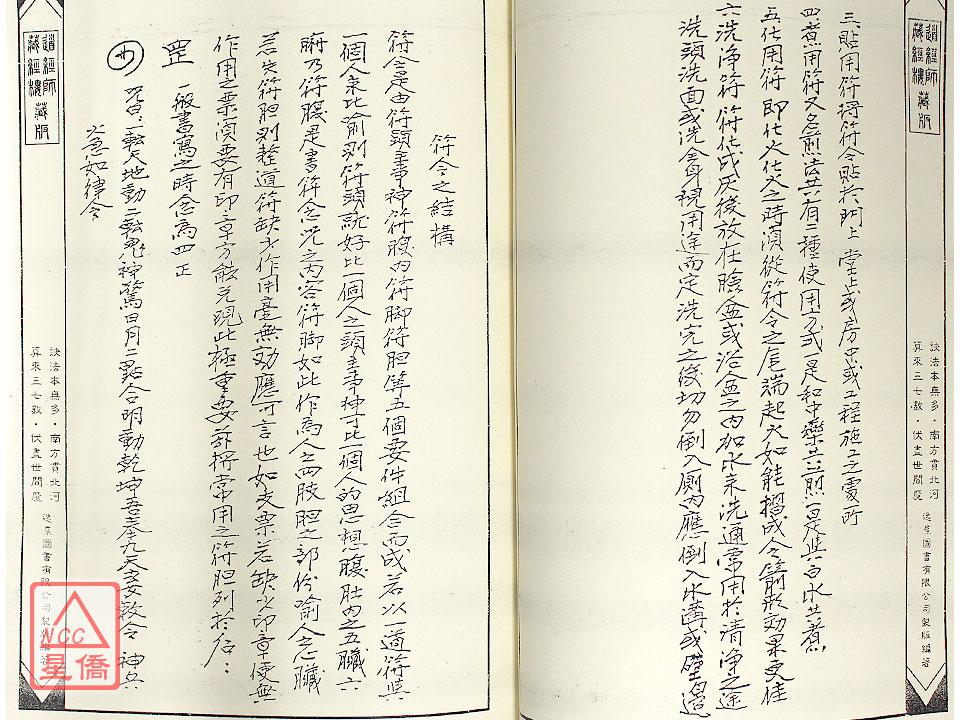 道經師
藏經樓
藏版
訣法本無多·南方貫北河
算來三七數·伏盡世間魔
逸羣圖書有限公司製版編著
三貼用符得符令貼於門上堂上或房中或工程施工之處所
四煮用符又名煎法共有二種使用方式一是和中藥共煎一是與白水共煮
五化用符即化火化火之時須從符令之尾端起火如能摺成令箭形効果更佳
六洗淨符符化成灰後放在臉盆或浴盆之內加水來洗通常用於清淨之途
洗頭洗面或洗會身視用途而定洗完之後切勿倒入廁內應倒入水溝或壁邊
符令之結構
符令是由符頭主事神符腹內符脚符胆等五個要件組合而成若以一道符與
一個人來比喻則符頭就好比一個人之頭主事神可比一個人的思想腹肚內之五臟六
腑乃符腹是書符念咒之內容符脚如此作為人之四肢胆之部份喻人之心臟
若失符胆則整道符缺少作用毫無効應可言也如支票若缺少印章便無
作用之票須要有印章方能兌現此極重要茲擇常用之符胆列於后：
罡 一般書寫之時念為四正
咒曰：一転天地動二転鬼神驚日月二點合明動乾坤吾奉九天玄女敕令 神兵
火急如律令
道經師
藏經樓
藏版
訣法本無多·南方貫北河
算來三七數·伏盡世間魔
逸羣圖書有限公司製版編著
NCC
星僑